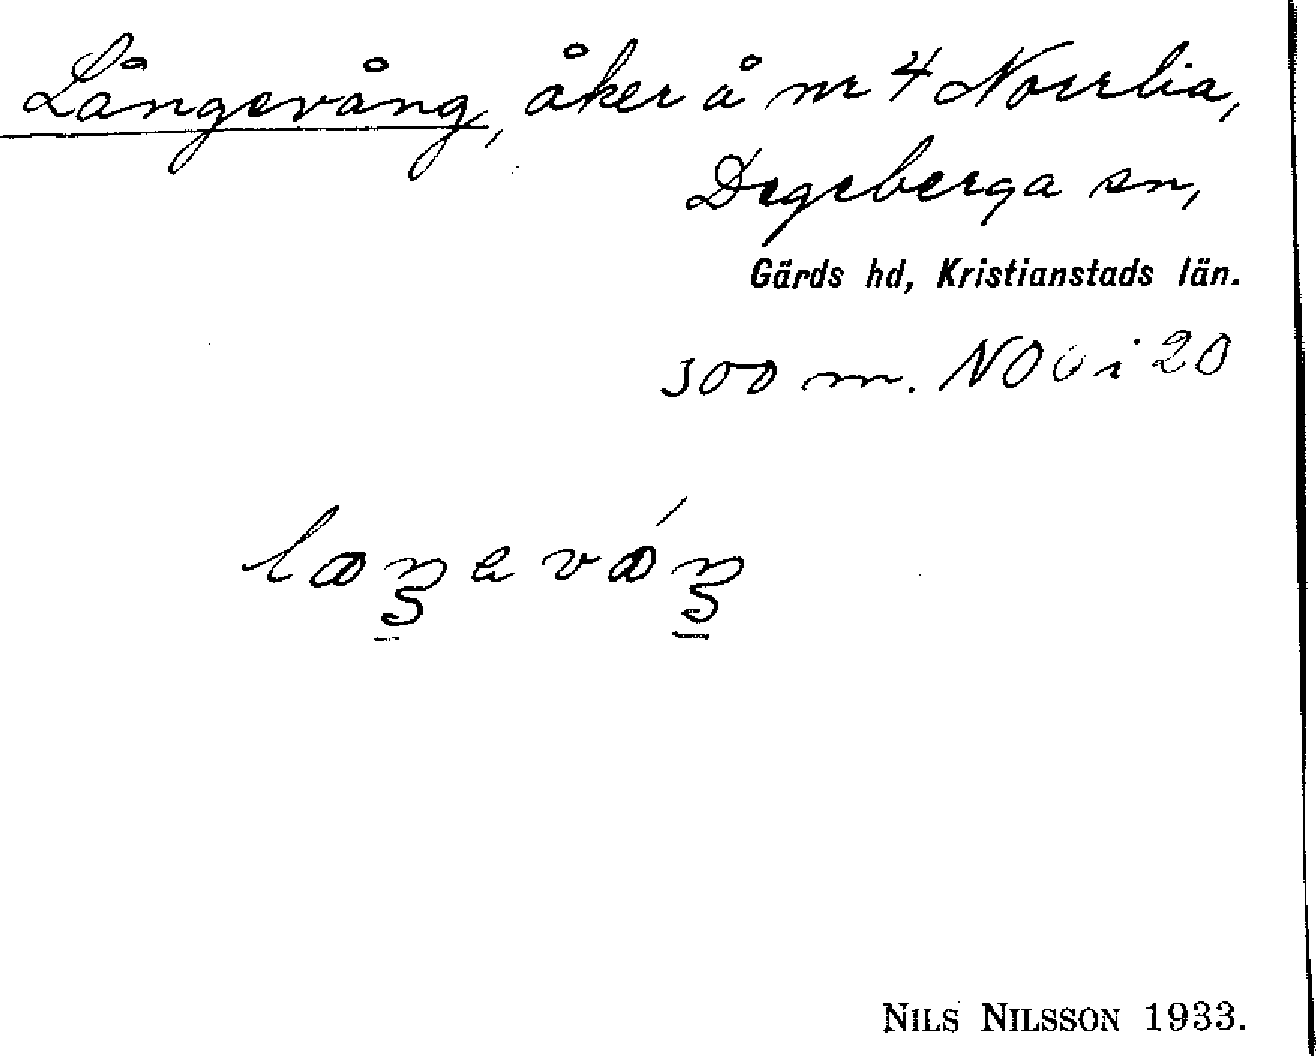 Långevång, åker å nr 4 Norrlia,
Degeberga sn,
Gärds hd, Kristianstads län.
300 m. NO i 20
Nils Nilsson 1933.